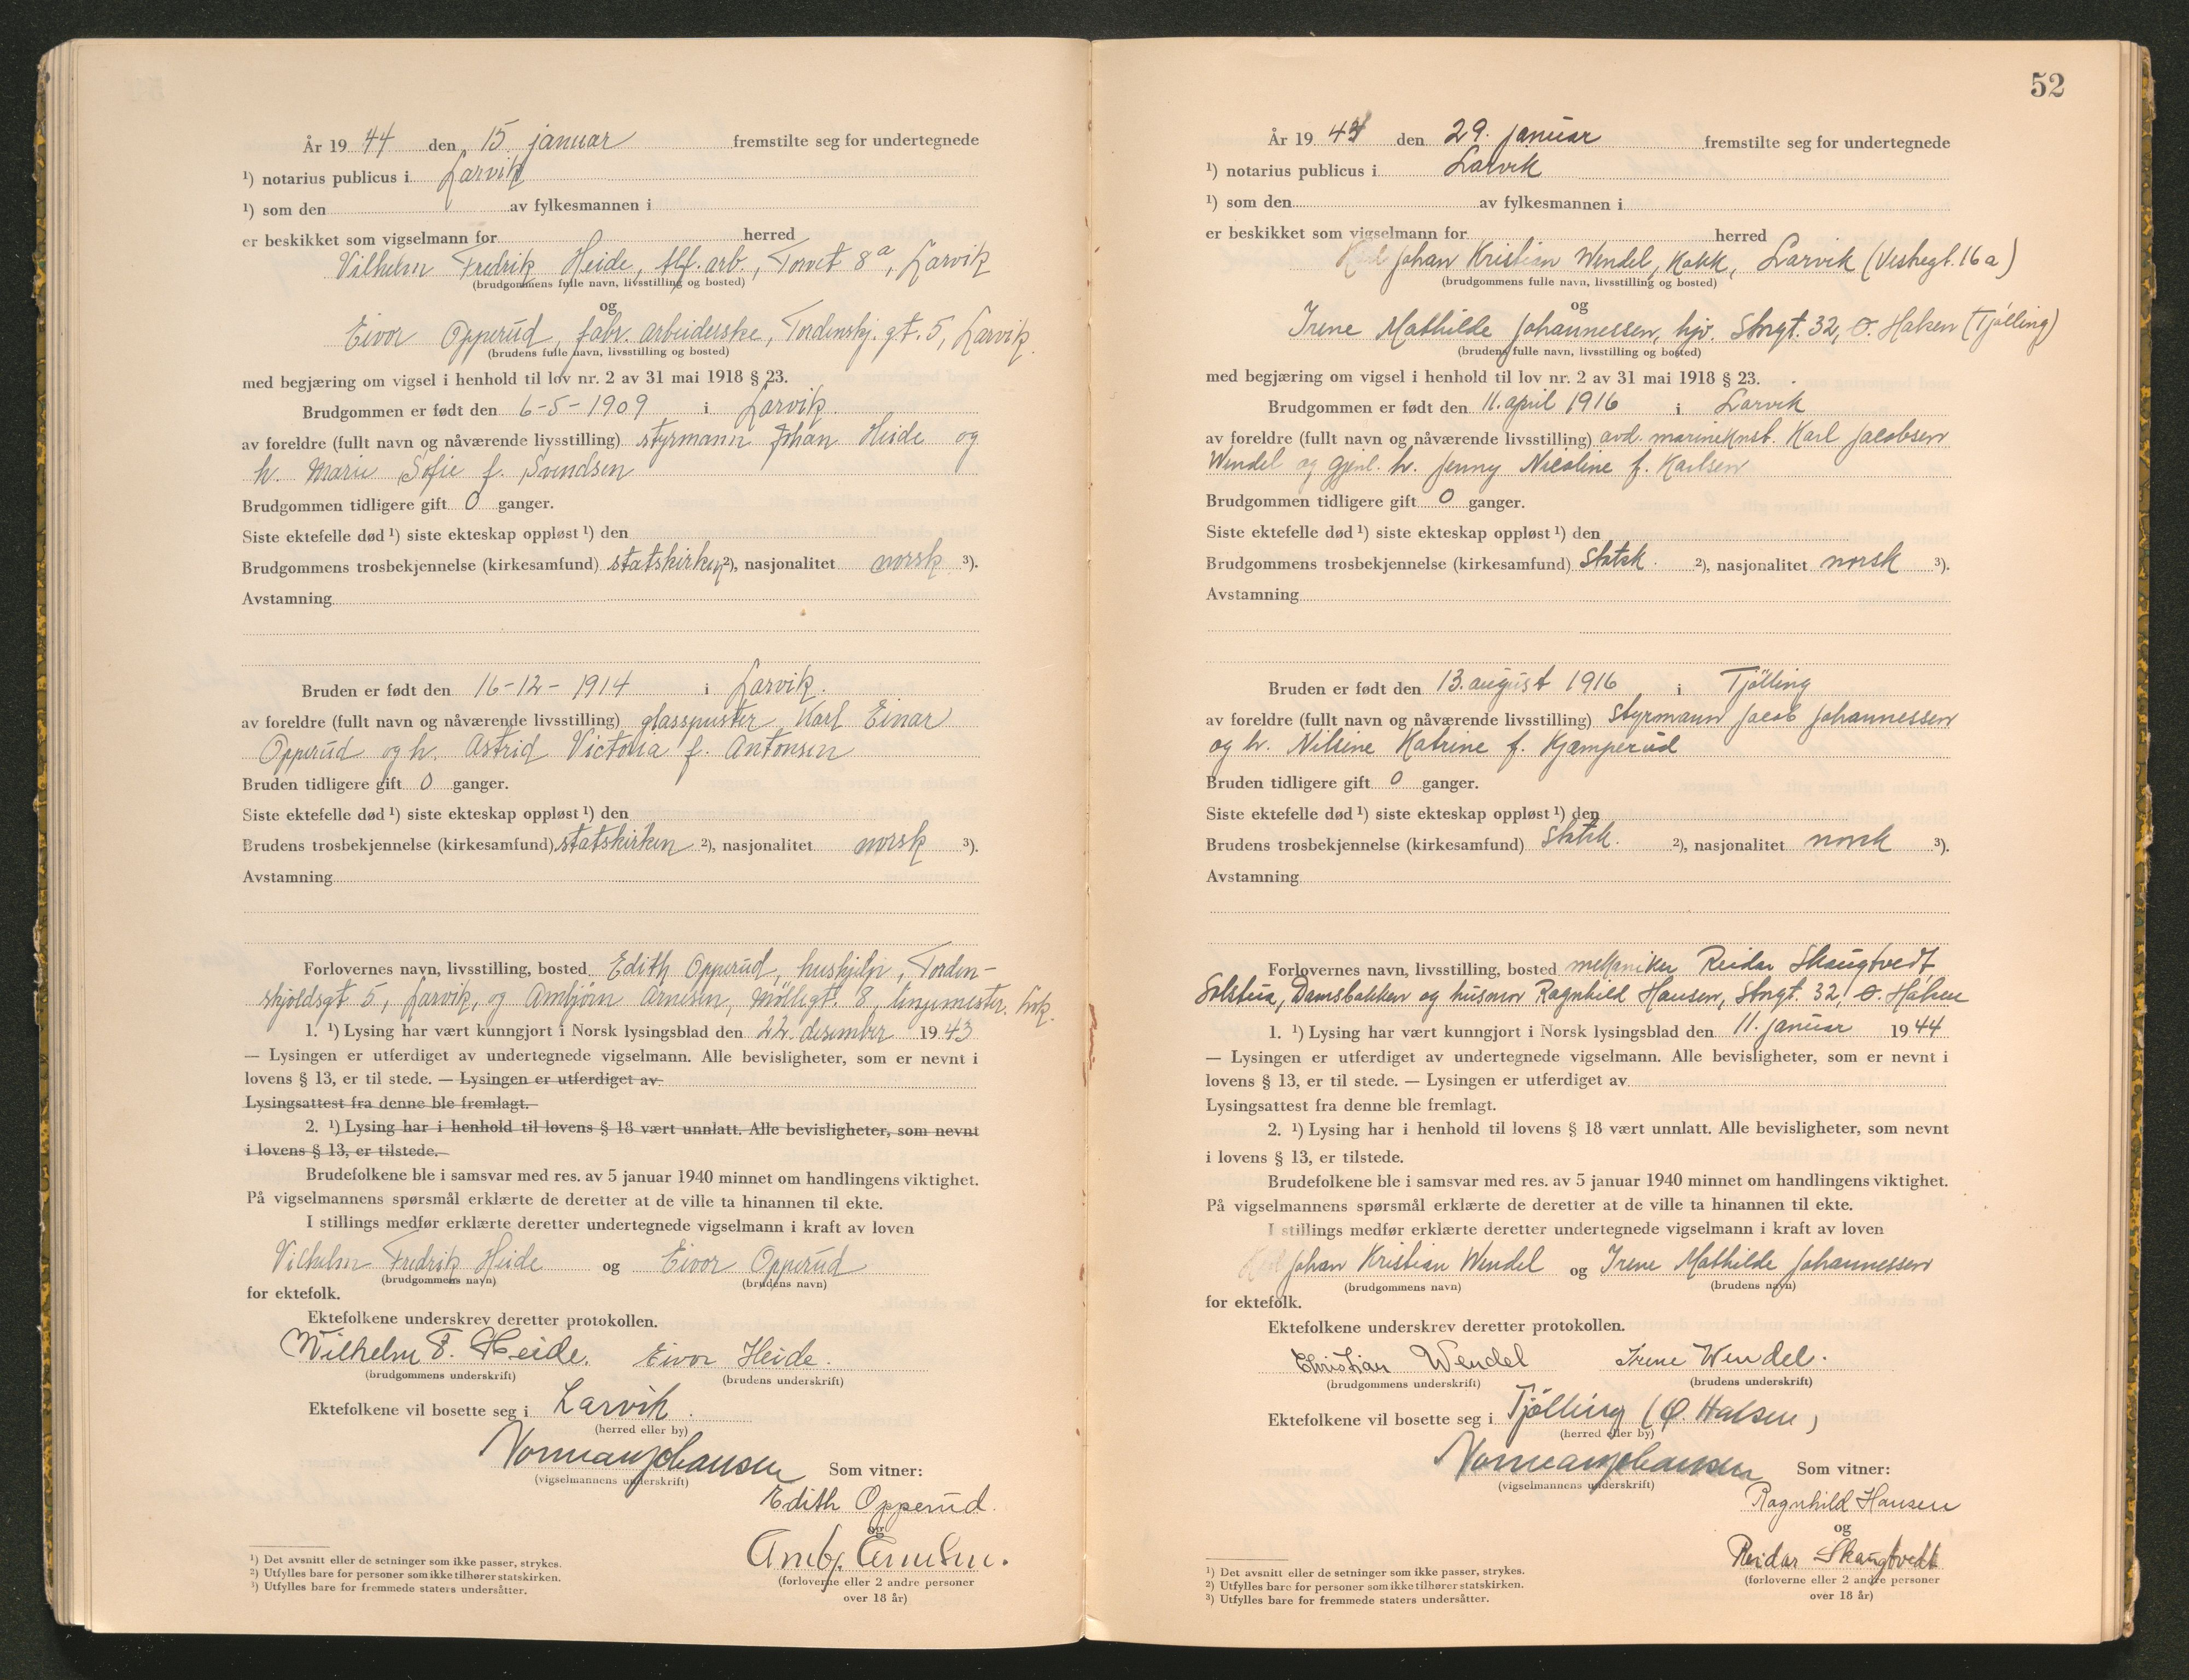 År 19 44 den 15. januar fremstilte seg for undertegnede
¹) notarius publicus i Larvik
¹) som den av fylkesmannen i
er beskikket som vigselmann for herred
Vilhelm Fredrik Heide, tlf. arb., Torvet 8a, Larvik
(brudgommens fulle navn, livsstilling og bosted)
og
Eivor Opperud, fabr. arbeiderske, Tordenskj. gt. 5, Larvik.
(brudens fulle navn, livsstilling og bosted)
med begjæring om vigsel i henhold til lov nr. 2 av 31 mai 1918 § 23.
Brudgommen er født den 6-5-1909 i Larvik.
av foreldre (fullt navn og nåværende livsstilling) styrmann Johan Heide og
h. Marie Sofie f. Svendsen
Brudgommen tidligere gift 0 ganger.
Siste ektefelle død ¹) siste ekteskap oppløst ¹) den
Brudgommens trosbekjennelse (kirkesamfund) statskirken ²), nasjonalitet norsk ³).
Avstamning
Bruden er født den 16-12-1914 i Larvik.
av foreldre (fullt navn og nåværende livsstilling) glasspuster Karl Einar
Opperud og h. Astrid Victoria f. Antonsen
Bruden tidligere gift 0 ganger.
Siste ektefelle død ¹) siste ekteskap oppløst ¹) den
Brudens trosbekjennelse (kirkesamfund) statskirken ²), nasjonalitet norsk ³).
Avstamning
Forlovernes navn, livsstilling, bosted Edith Opperud, hushjelp, Torden-
skjoldsgt 5, Larvik, og Arnbjørn Arnesen, Møllegt. 8, tingmester. Lvk.
1. ¹) Lysing har vært kunngjort i Norsk lysingsblad den 22. desember 19 43
— Lysingen er utferdiget av undertegnede vigselmann. Alle bevisligheter, som er nevnt i
lovens § 13, er til stede. — Lysingen er utferdiget av
Lysingsattest fra denne ble fremlagt.
2. ¹) Lysing har i henhold til lovens § 18 vært unnlatt. Alle bevisligheter, som nevnt
i lovens § 13, er tilstede.
Brudefolkene ble i samsvar med res. av 5 januar 1940 minnet om handlingens viktighet.
På vigselmannens spørsmål erklærte de deretter at de ville ta hinannen til ekte.
I stillings medfør erklærte deretter undertegnede vigselmann i kraft av loven
Vilhelm Fredrik Heide og Eivor Opperud
(brudgommens navn) (brudens navn)
for ektefolk.
Ektefolkene underskrev deretter protokollen.
Wilhelm F. Heide. Eivor Heide.
(brudgommens underskrift) (brudens underskrift)
Ektefolkene vil bosette seg i Larvik.
(herred eller by)
Norman Johansen Som vitner:
(vigselmannens underskrift)
Edith Opperud.
og
Arnbj. Arnesen.
(forloverne eller 2 andre personer
over 18 år)
¹) Det avsnitt eller de setninger som ikke passer, strykes.
²) Utfylles bare for personer som ikke tilhører statskirken.
³) Utfylles bare for fremmede staters undersåtter.
52
År 19 44 den 29. januar fremstilte seg for undertegnede
¹) notarius publicus i Larvik
¹) som den av fylkesmannen i
er beskikket som vigselmann for herred
Karl Johan Kristian Wendel, kokk, Larvik (Vestregt. 16a)
(brudgommens fulle navn, livsstilling og bosted)
og
Irene Mathilde Johannessen, hjv. Storgt. 32, Ø. Halsen (Tjølling)
(brudens fulle navn, livsstilling og bosted)
med begjæring om vigsel i henhold til lov nr. 2 av 31 mai 1918 § 23.
Brudgommen er født den 11. april 1916 i Larvik
av foreldre (fullt navn og nåværende livsstilling) avd. marineknst. Karl Jacobsen
Wendel og gjenl. h. Jenny Nicoline f. Karlsen
Brudgommen tidligere gift 0 ganger.
Siste ektefelle død ¹) siste ekteskap oppløst ¹) den
Brudgommens trosbekjennelse (kirkesamfund) Statsk. ²), nasjonalitet norsk ³).
Avstamning
Bruden er født den 13. august 1916 i Tjølling
av foreldre (fullt navn og nåværende livsstilling) Styrmann Jacob Johannessen
og h. Nilsine Katrine f. Kjæmperud
Bruden tidligere gift 0 ganger.
Siste ektefelle død ¹) siste ekteskap oppløst ¹) den
Brudens trosbekjennelse (kirkesamfund) Statsk. ²), nasjonalitet norsk ³).
Avstamning
Forlovernes navn, livsstilling, bosted mekaniker Reidar Skaugtvedt,
Solstua, Damsbakken og husmor Ragnhild Hansen, Storgt. 32, Ø. Halsen
1. ¹) Lysing har vært kunngjort i Norsk lysingsblad den 11. januar 19 44
— Lysingen er utferdiget av undertegnede vigselmann. Alle bevisligheter, som er nevnt i
lovens § 13, er til stede. — Lysingen er utferdiget av
Lysingsattest fra denne ble fremlagt.
2. ¹) Lysing har i henhold til lovens § 18 vært unnlatt. Alle bevisligheter, som nevnt
i lovens § 13, er tilstede.
Brudefolkene ble i samsvar med res. av 5 januar 1940 minnet om handlingens viktighet.
På vigselmannens spørsmål erklærte de deretter at de ville ta hinannen til ekte.
I stillings medfør erklærte deretter undertegnede vigselmann i kraft av loven
Karl Johan Kristian Wendel og Irene Mathilde Johannessen
(brudgommens navn) (brudens navn)
for ektefolk.
Ektefolkene underskrev deretter protokollen.
Christian Wendel Irene Wendel.
(brudgommens underskrift) (brudens underskrift)
Ektefolkene vil bosette seg i Tjølling (Ø. Halsen)
(herred eller by)
Norman Johansen Som vitner:
(vigselmannens underskrift)
Ragnhild Hansen
og
Reidar Skaugtvedt
(forloverne eller 2 andre personer
over 18 år)
¹) Det avsnitt eller de setninger som ikke passer, strykes.
²) Utfylles bare for personer som ikke tilhører statskirken.
³) Utfylles bare for fremmede staters undersåtter.